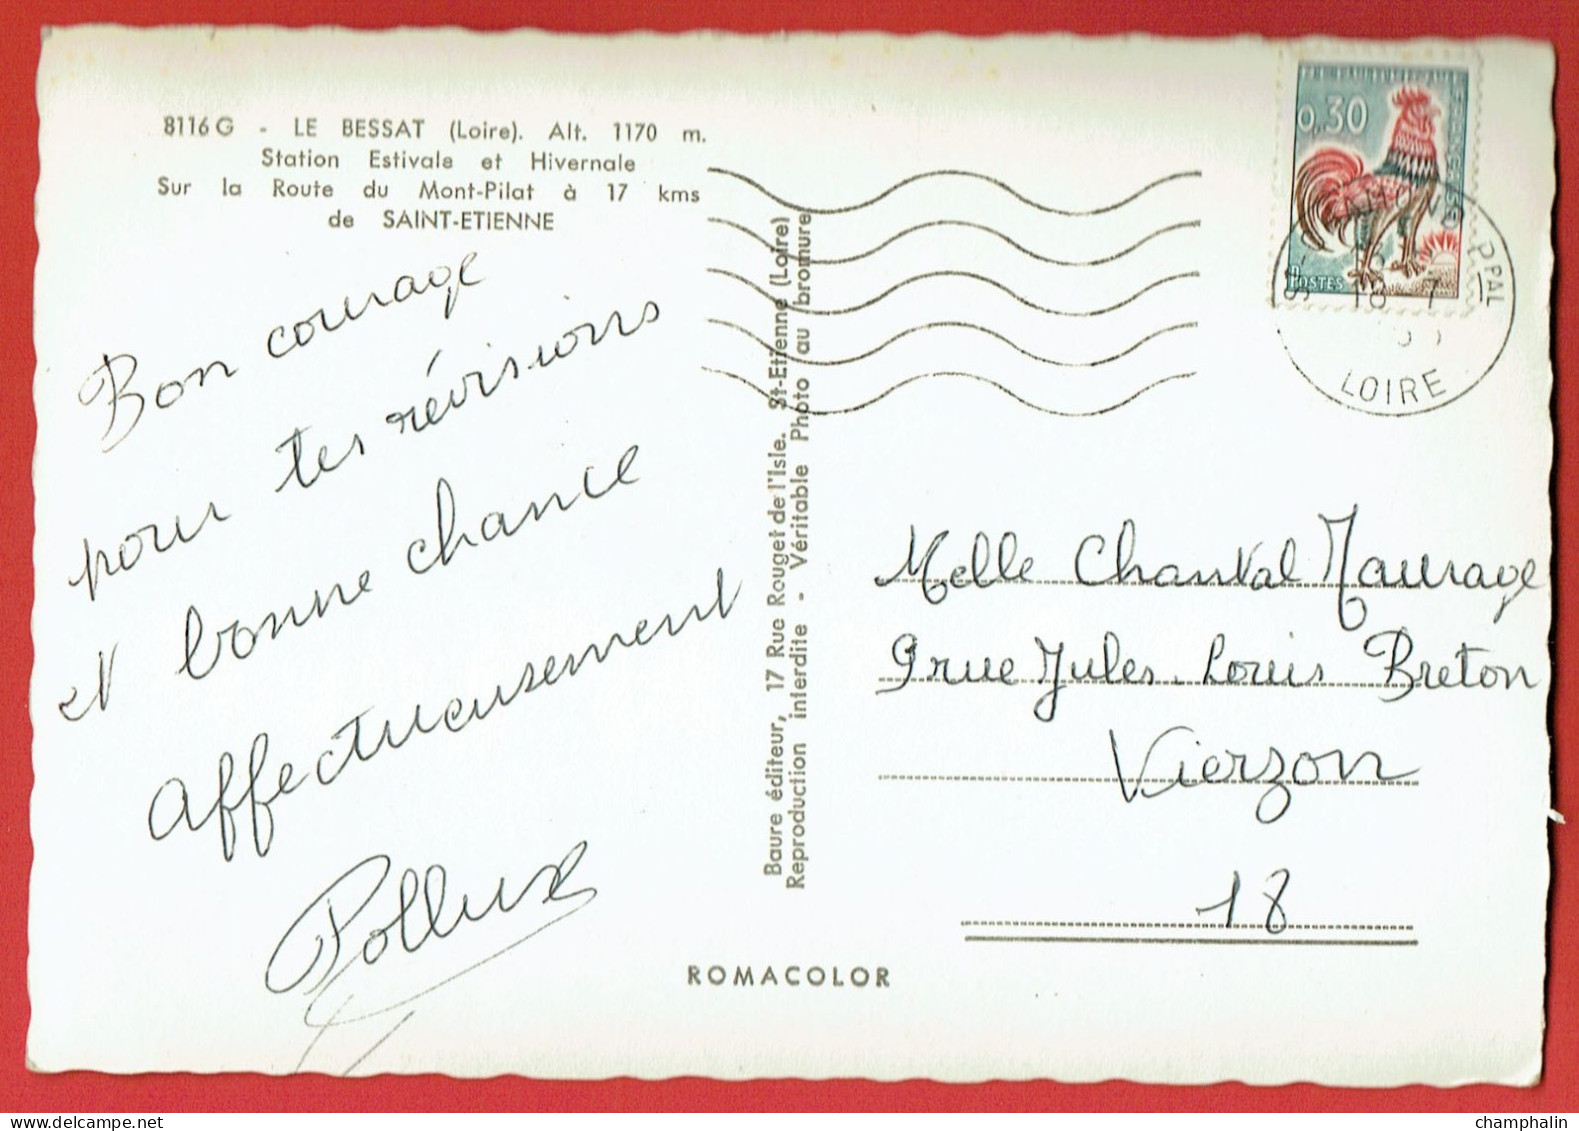 8116 G - LE BESSAT (Loire). Alt. 1170 m.
Station Estivale et Hivernale
Sur la Route du Mont-Pilat à 17 kms
de SAINT-ETIENNE
Bon courage
pour tes révisions
et bonne chance
Affectueusement
Pollux
Baure éditeur, 17 Rue Rouget de l'Isle. St-Etienne (Loire)
Reproduction interdite - Véritable Photo au bromure
ROMACOLOR
0,30
POSTES
PPAL
LOIRE
Melle Chantal Maurage
9 rue Jules Louis Breton
Vierzon
18
champhalin